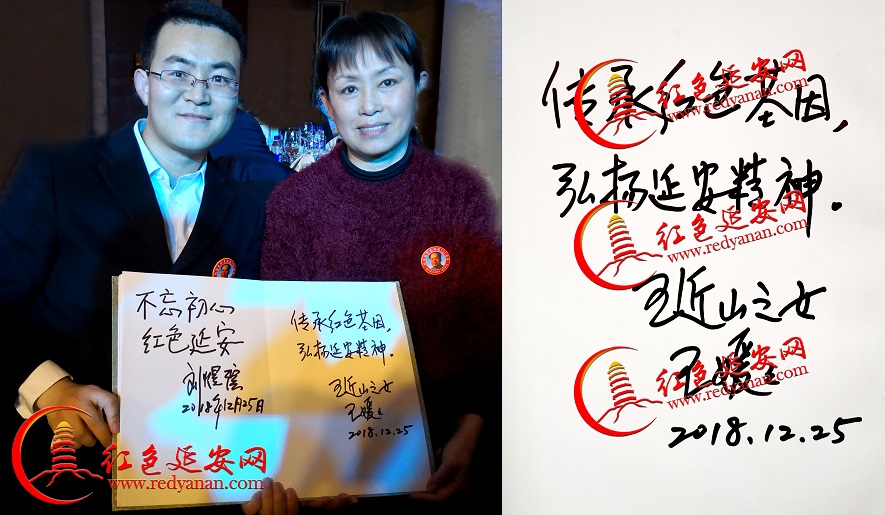 不忘初心
红色延安
2018年12月25日
传承红色基因,
弘扬延安精神。
王近山之女
王媛々
2018.12.25
红色延安网
www.redyanan.com
传承红色基因,
红色延安网
www.redyanan.com
弘扬延安精神。
红色延安网
www.redyanan.com
王近山之女
王媛々
红色延安网
www.redyanan.com
2018.12.25